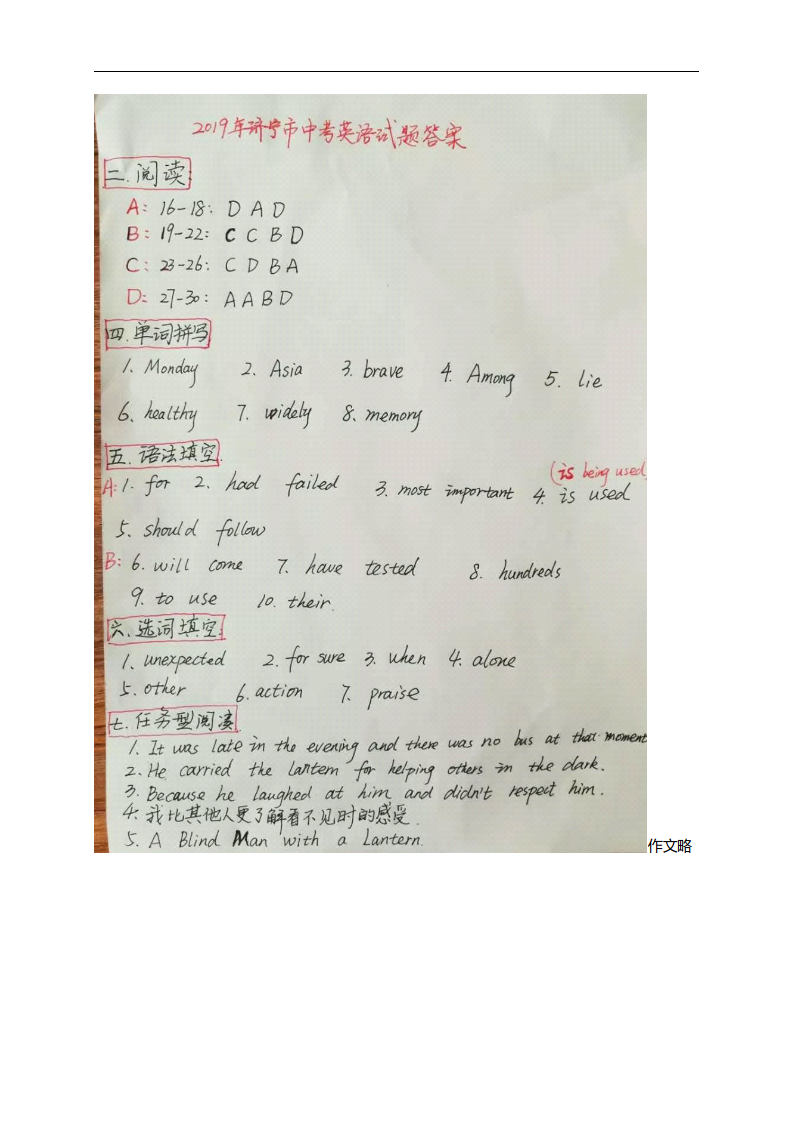 2019年济宁市中考英语试题答案
二.阅读:
A: 16-18: D A D
B: 19-22: C C B D
C: 23-26: C D B A
D: 27-30: A A B D
四.单词拼写
1. Monday 2. Asia 3. brave 4. Among 5. lie
6、healthy 7. widely 8、memory
五.语法填空.
(is being used)
A: 1. for 2. had failed 3. most important 4. is used
5. should follow
B: 6. will come 7. have tested 8. hundreds
9. to use 10. their.
六、选词填空:
1. unexpected 2. for sure 3. when 4. alone
5. other 6. action 7. praise
七.任务型阅读
1. It was late in the evening and there was no bus at that moment
2. He carried the lantern for helping others in the dark.
3. Because he laughed at him and didn't respect him.
4. 我比其他人更了解看不见时的感受.
5. A Blind Man with a Lantern.
作文略